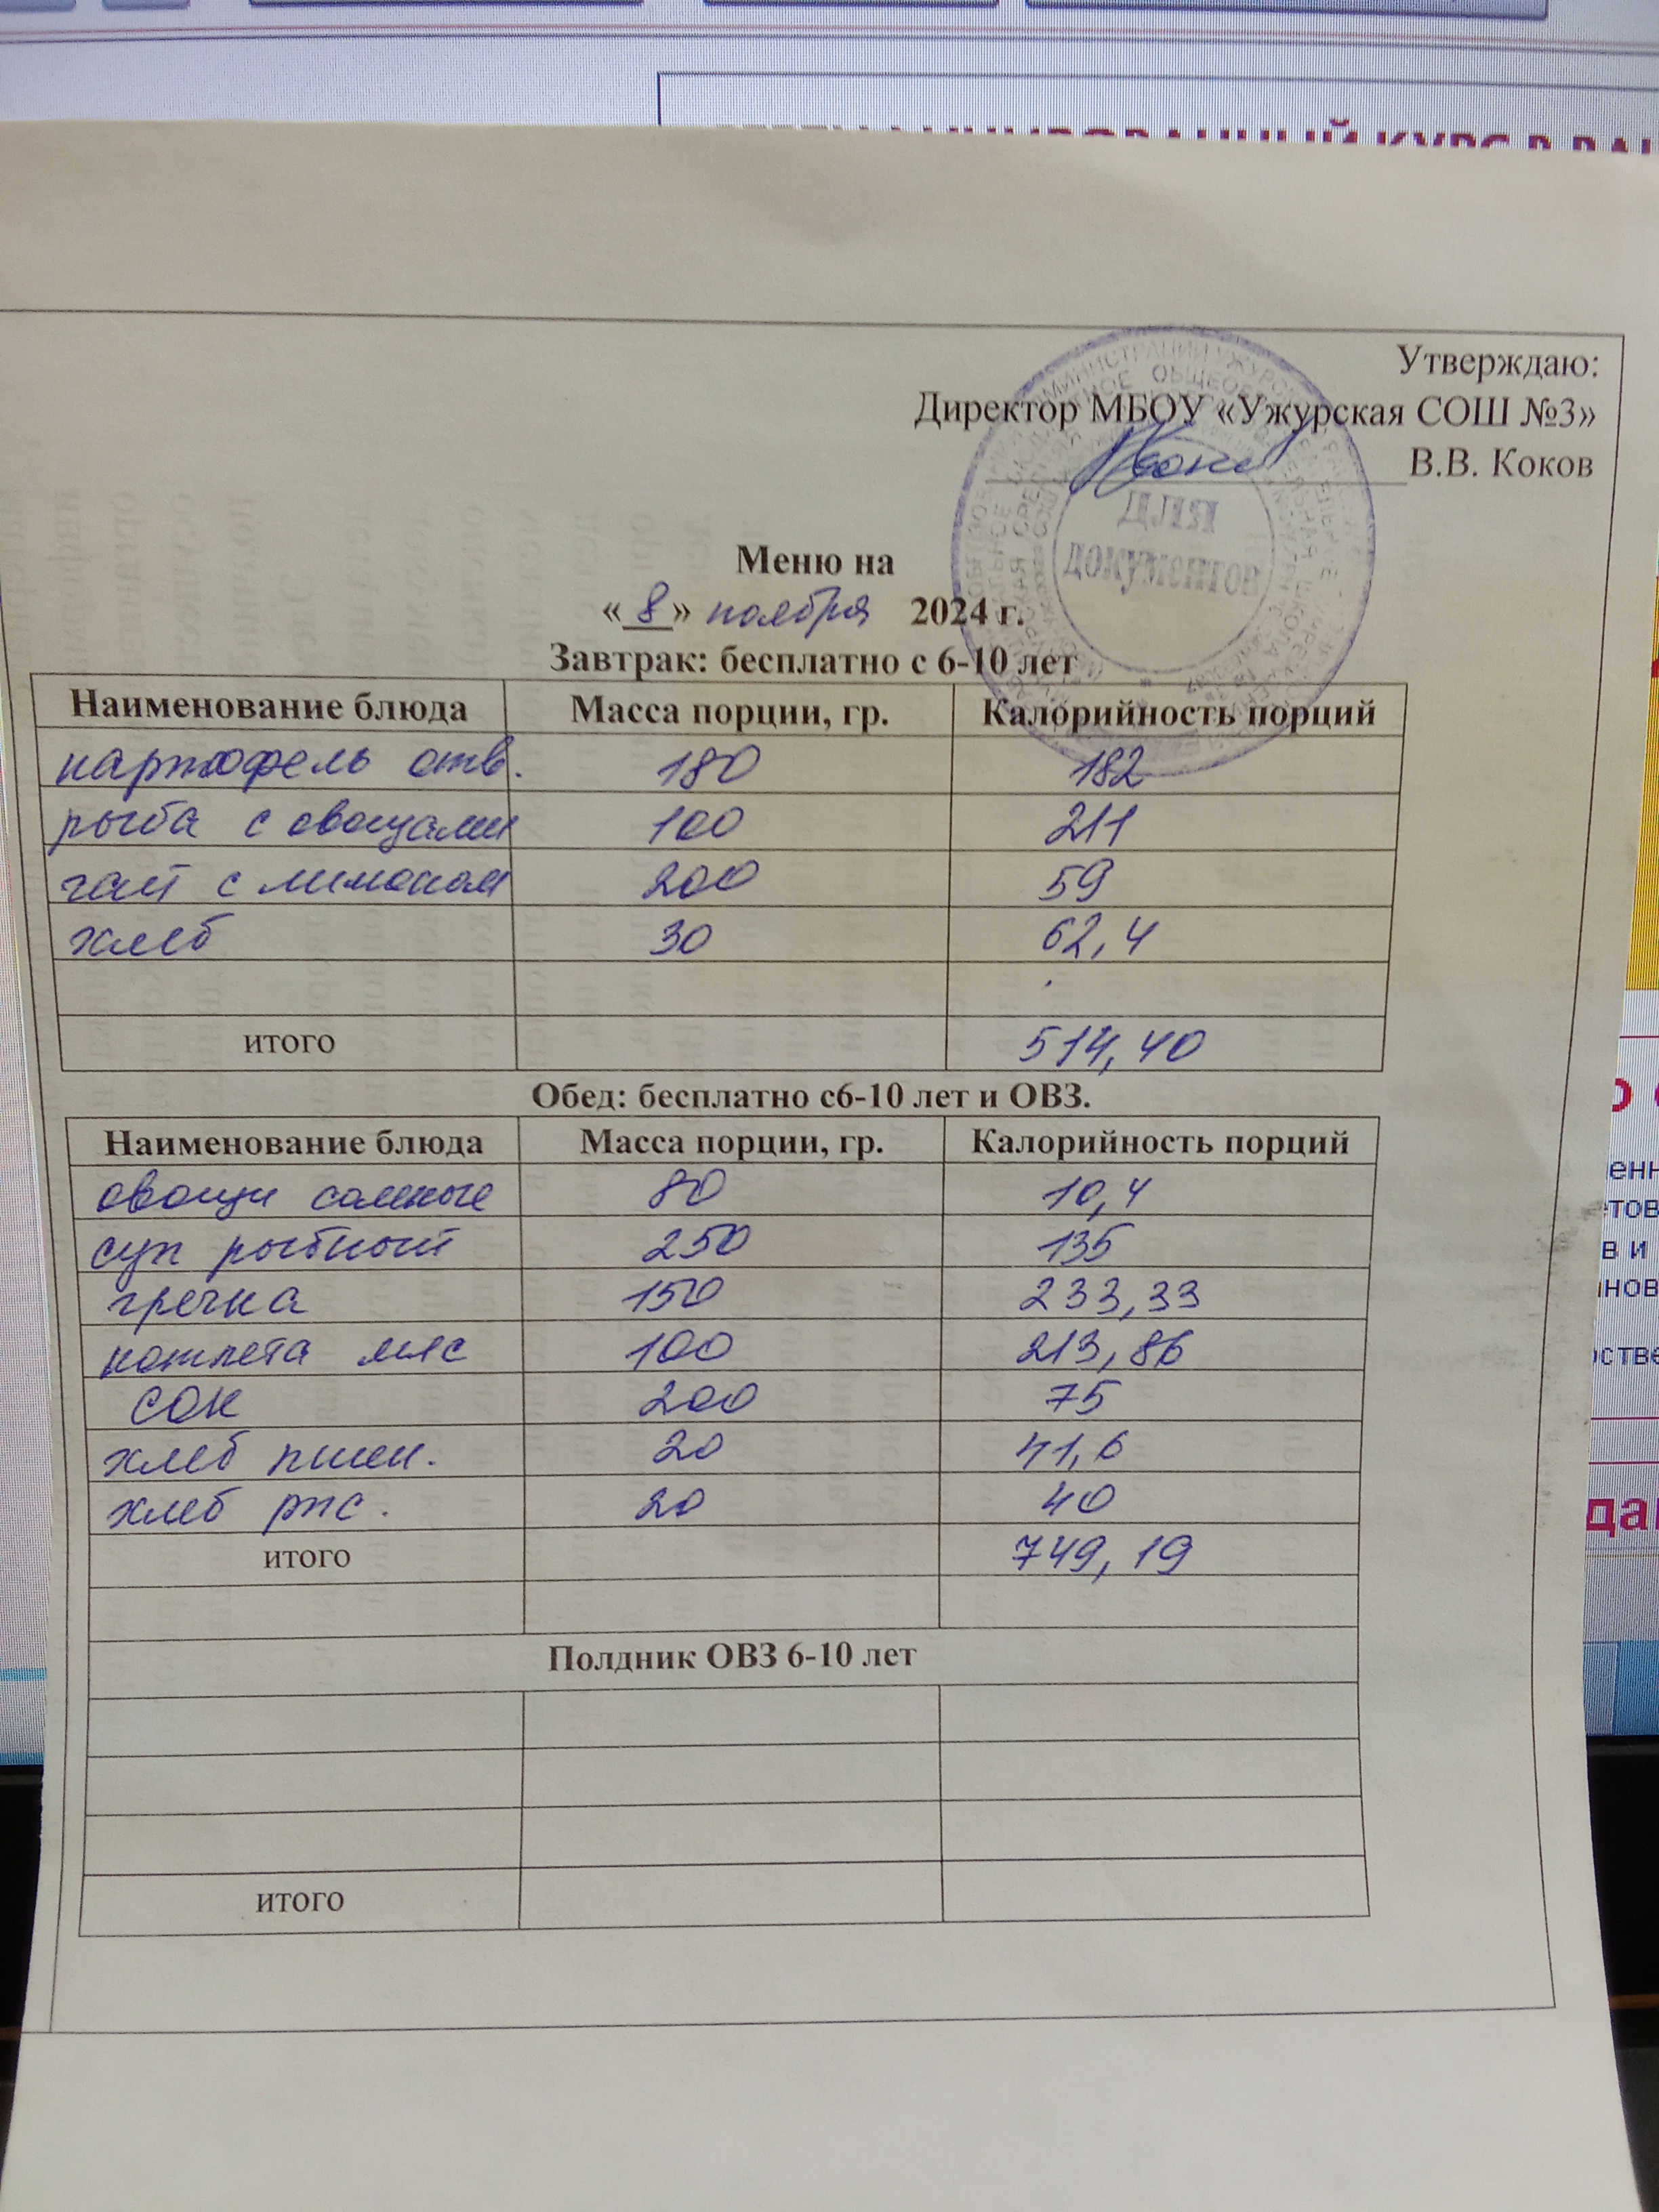 Утверждаю:
Директор МБОУ «Ужурская СОШ №3»
В.В. Коков
для
документов
Меню на
«8» ноября 2024 г.
Завтрак: бесплатно с 6-10 лет
Наименование блюда Масса порции, гр. Калорийность порций
картофель отв. 180 182
рыба с овощами 100 211
чай с лимоном 200 59
хлеб 30 62,4
итого 514,40
Обед: бесплатно с6-10 лет и ОВЗ.
Наименование блюда Масса порции, гр. Калорийность порций
овощи соленые 80 10,4
суп рыбный 250 135
гречка 150 233,33
котлета мяс 100 213,86
сок 200 75
хлеб пшен. 20 41,6
хлеб рж. 20 40
итого 749,19
Полдник ОВЗ 6-10 лет
итого